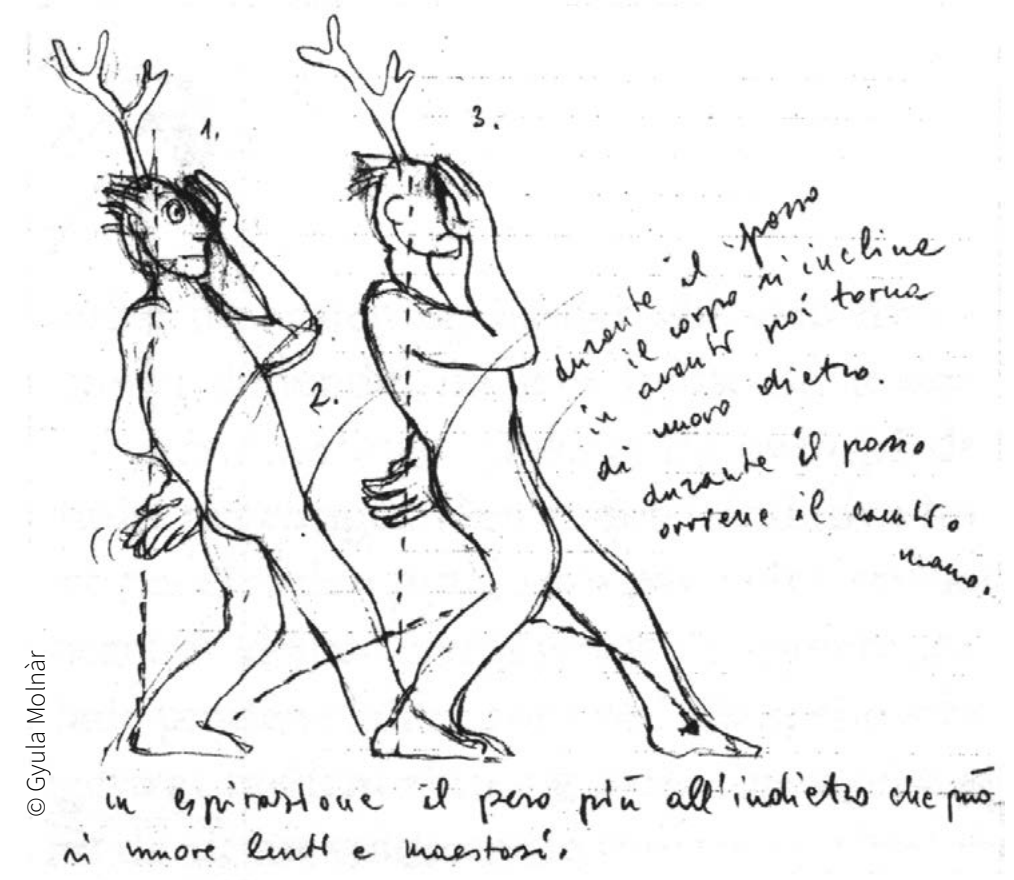 1.
3.
2.
durante il passo
il corpo si inclina
in avanti poi torna
di nuovo dietro.
durante il passo
avviene il cambio
mano.
in espirazione il peso più all'indietro che può
si muove lenti e maestosi.
© Gyula Molnàr